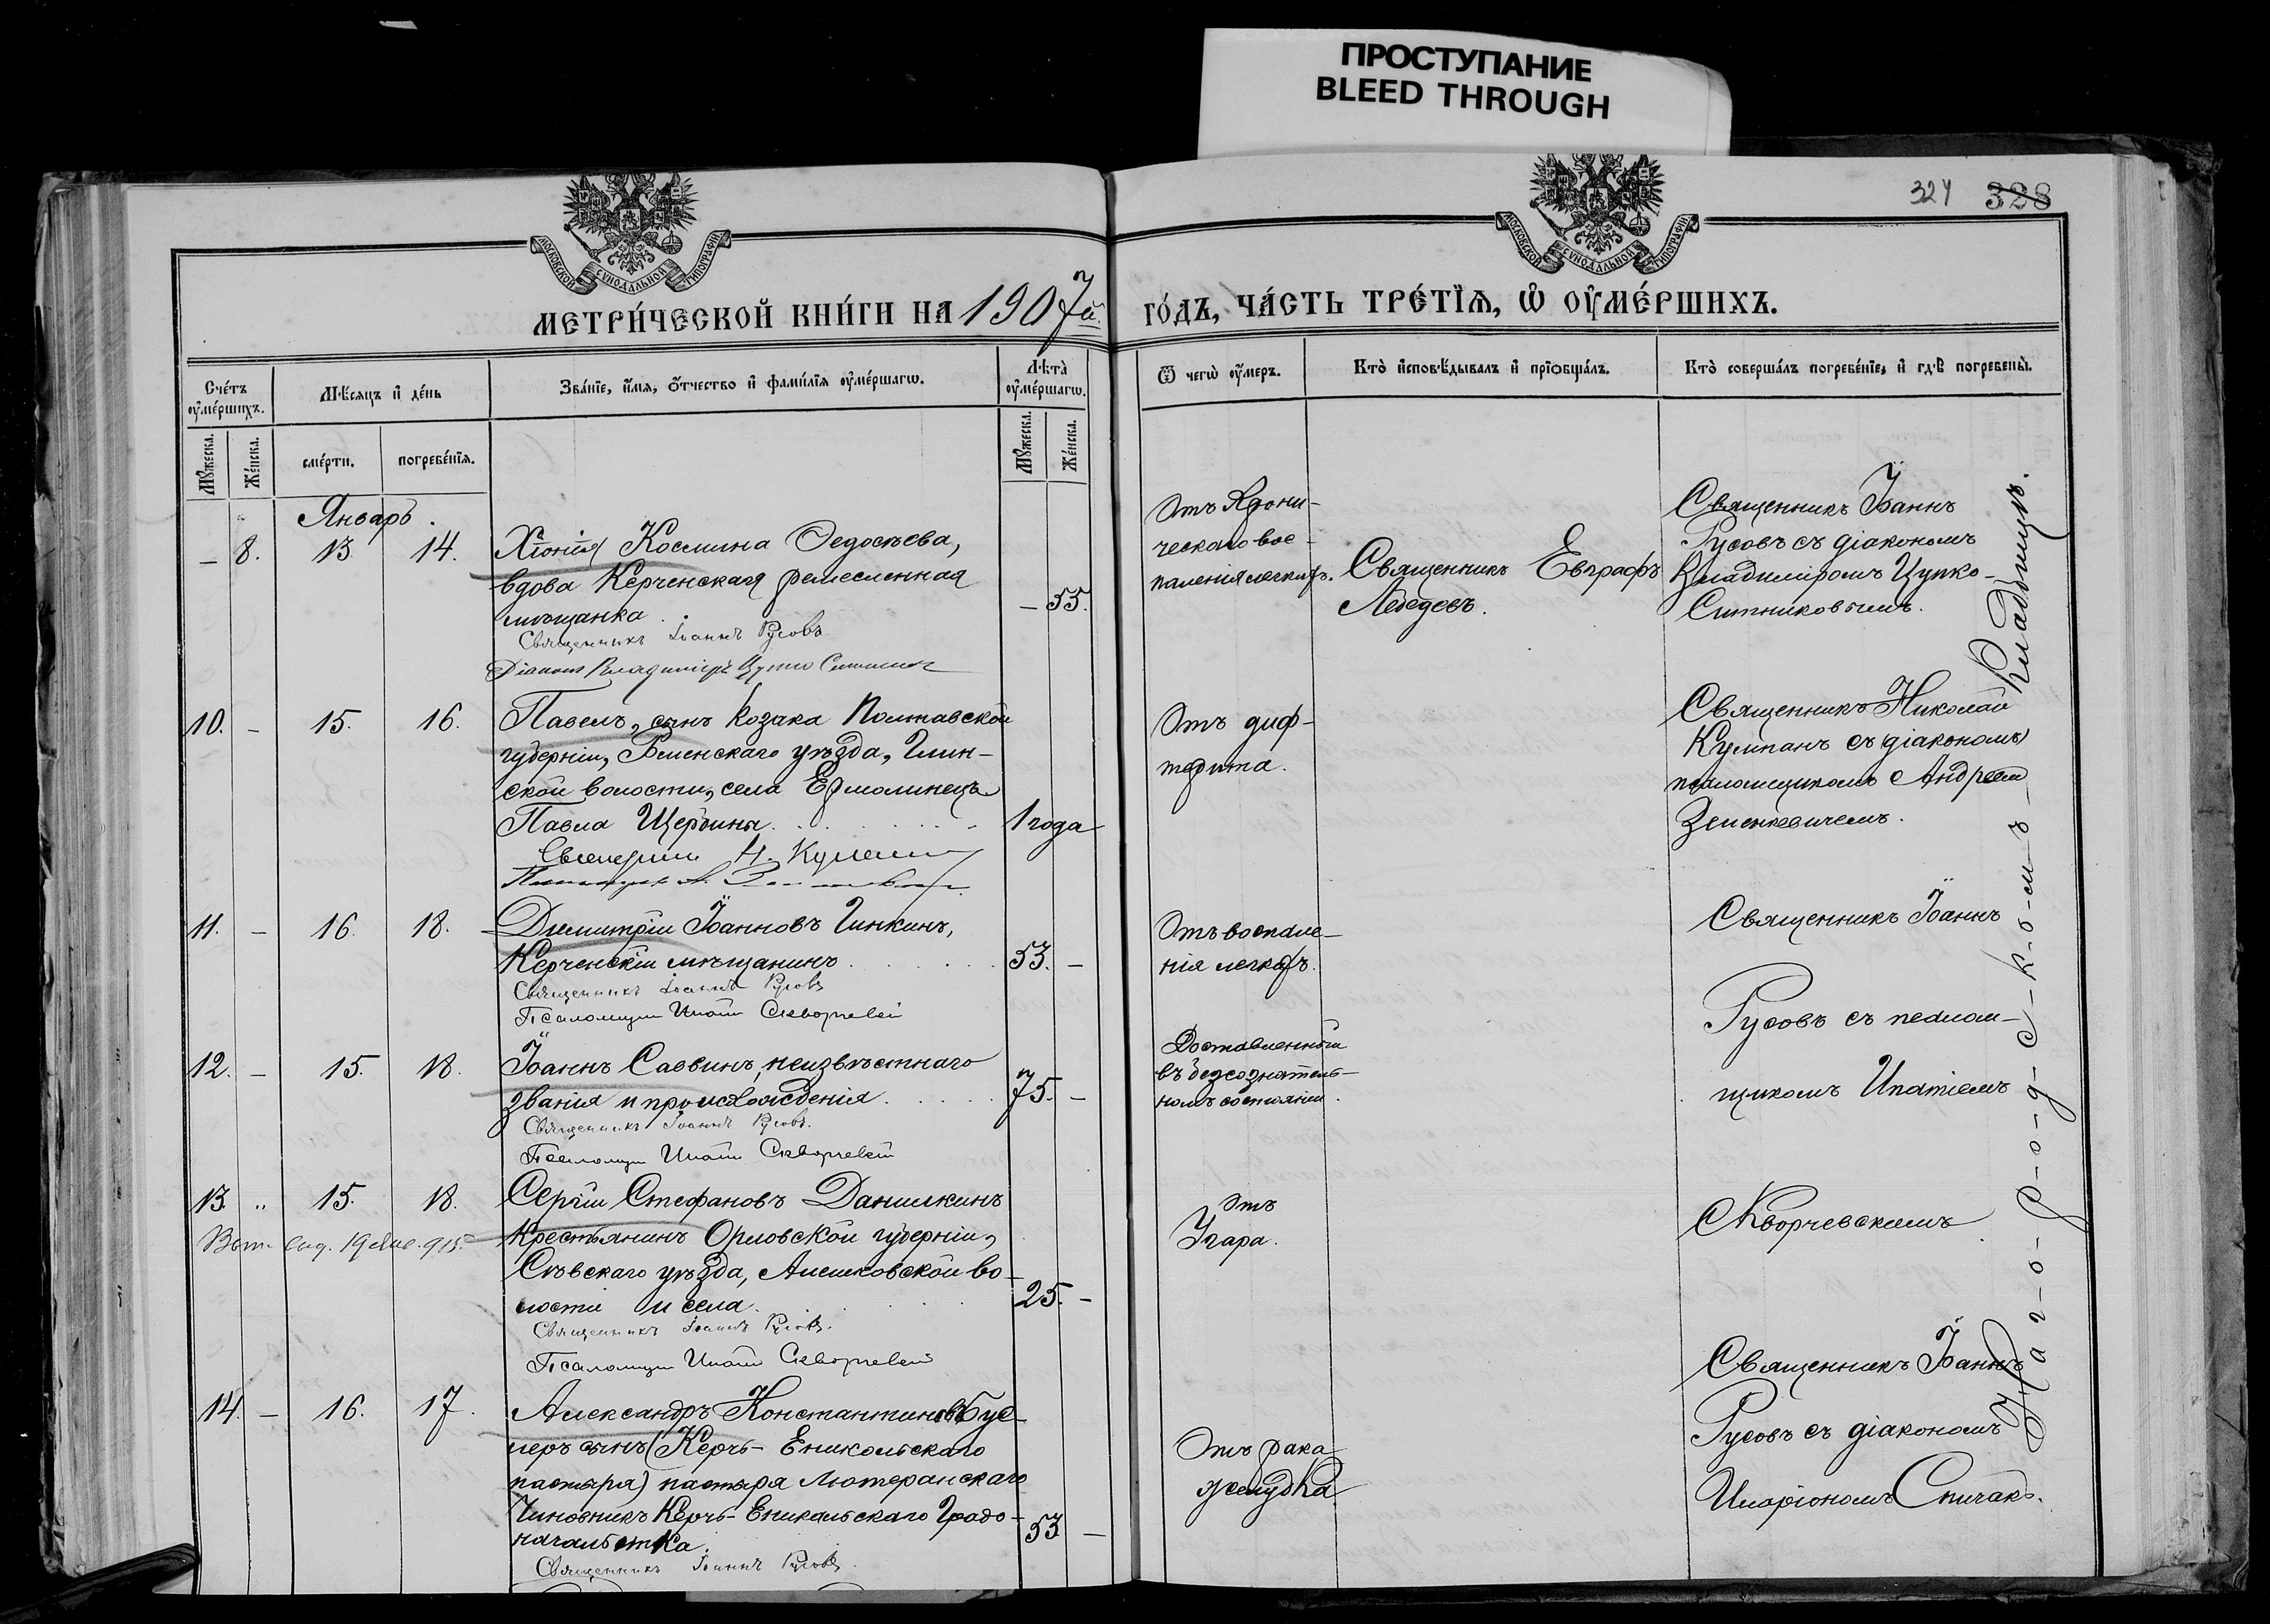 ПРОСТУПАНИЕ
BLEED THROUGH
324 328
МОСКОВСКОЙ СѴНОДАЛЬНОЙ ТИПОГРАФІИ
МОСКОВСКОЙ СѴНОДАЛЬНОЙ ТИПОГРАФІИ
МЕТРИ́ЧЕСКОЙ КНИ́ГИ НА 1907й
ГО́ДЪ, ЧА́СТЬ ТРЕ́ТІѦ, Ѡ҆ ОУ҆МЕ́РШИХЪ.
Сче́тъ оу҆ме́ршихъ.
Мѣ́сяцъ и҆ де́нь
Зва́ніе, и҆́мя, ѻ҆́тчество и҆ фами́лїя оу҆ме́ршагѡ.
Лѣта̀ оу҆ме́ршагѡ.
Ѿ чегѡ̀ оу҆́меръ.
Кто̀ и҆сповѣ́дывалъ и҆ прїѻбща́лъ.
Кто̀ соверша́лъ погребе́нїе, и҆ гдѣ̀ погребены̀.
Мꙋ́жеска.
Же́нска.
сме́рти.
погребе́нїя.
Мꙋ́жеска.
Же́нска.
Январь.
– 8. 13. 14. Хіонія Космина Федосѣева,
вдова Керченская ремесленная
мѣщанка. – 55.
Священникъ Іоаннъ Русовъ
Діаконъ Владиміръ Цупко Ситников
Отъ хрони-
ческаго вос-
паленія легкихъ.
Священникъ Евграфъ
Лебедевъ.
Священникъ Іоаннъ
Русовъ съ діакономъ
Владиміромъ Цупко-
Ситниковымъ.
10. – 15. 16. Павелъ, сынъ козака Полтавской
губерніи, Роменскаго уѣзда, Глин-
ской волости, села Ермолинецъ
Павла Щербины. 1 года
Священник Н. Кумпан
Отъ диф-
терита.
Священникъ Николай
Кумпанъ съ (діакономъ)
псаломщикомъ Андреем
Зеленкевичемъ.
11. – 16. 18. Димитрій Іоанновъ Гинкинъ,
Керченскій мѣщанинъ 53. –
Священникъ Іоаннъ Русовъ
Псаломщик Ипатій Скворчевский
Отъ воспале-
нія легкихъ.
Священникъ Іоаннъ
Русовъ съ псалом-
щикомъ Ипатіемъ
Скворчевскимъ
12. – 15. 18. Іоаннъ Саввинъ, неизвѣстнаго
званія и происхожденія. 75. –
Священникъ Іоаннъ Русовъ.
Псаломщик Ипатій Скворчевский
Доставленный
въ безсознатель-
номъ состояніи.
13. „ 15. 18. Сергій Стефановъ Данилкинъ
крестьянинъ Орловской губерніи,
Сѣвскаго уѣзда, Алешковской во-
лости и села. 25. –
Священникъ Іоаннъ Русовъ.
Псаломщик Ипатій Скворчевский
Отъ
Угара.
14. – 16. 17. Александръ Константиновъ Бус-
леръ сынъ (Керчь-Еникольскаго
пастыря) пастыря Лютеранскаго
Чиновникъ Керчь-Еникальскаго Градо-
начальства. 53 –
Священникъ Іоаннъ Русовъ.
Отъ рака
желудка
Священникъ Іоаннъ
Русовъ съ діакономъ
Иларіономъ Спичакъ.
На г-о-р-о-д-с-к-о-м-ъ – Кладбищѣ.